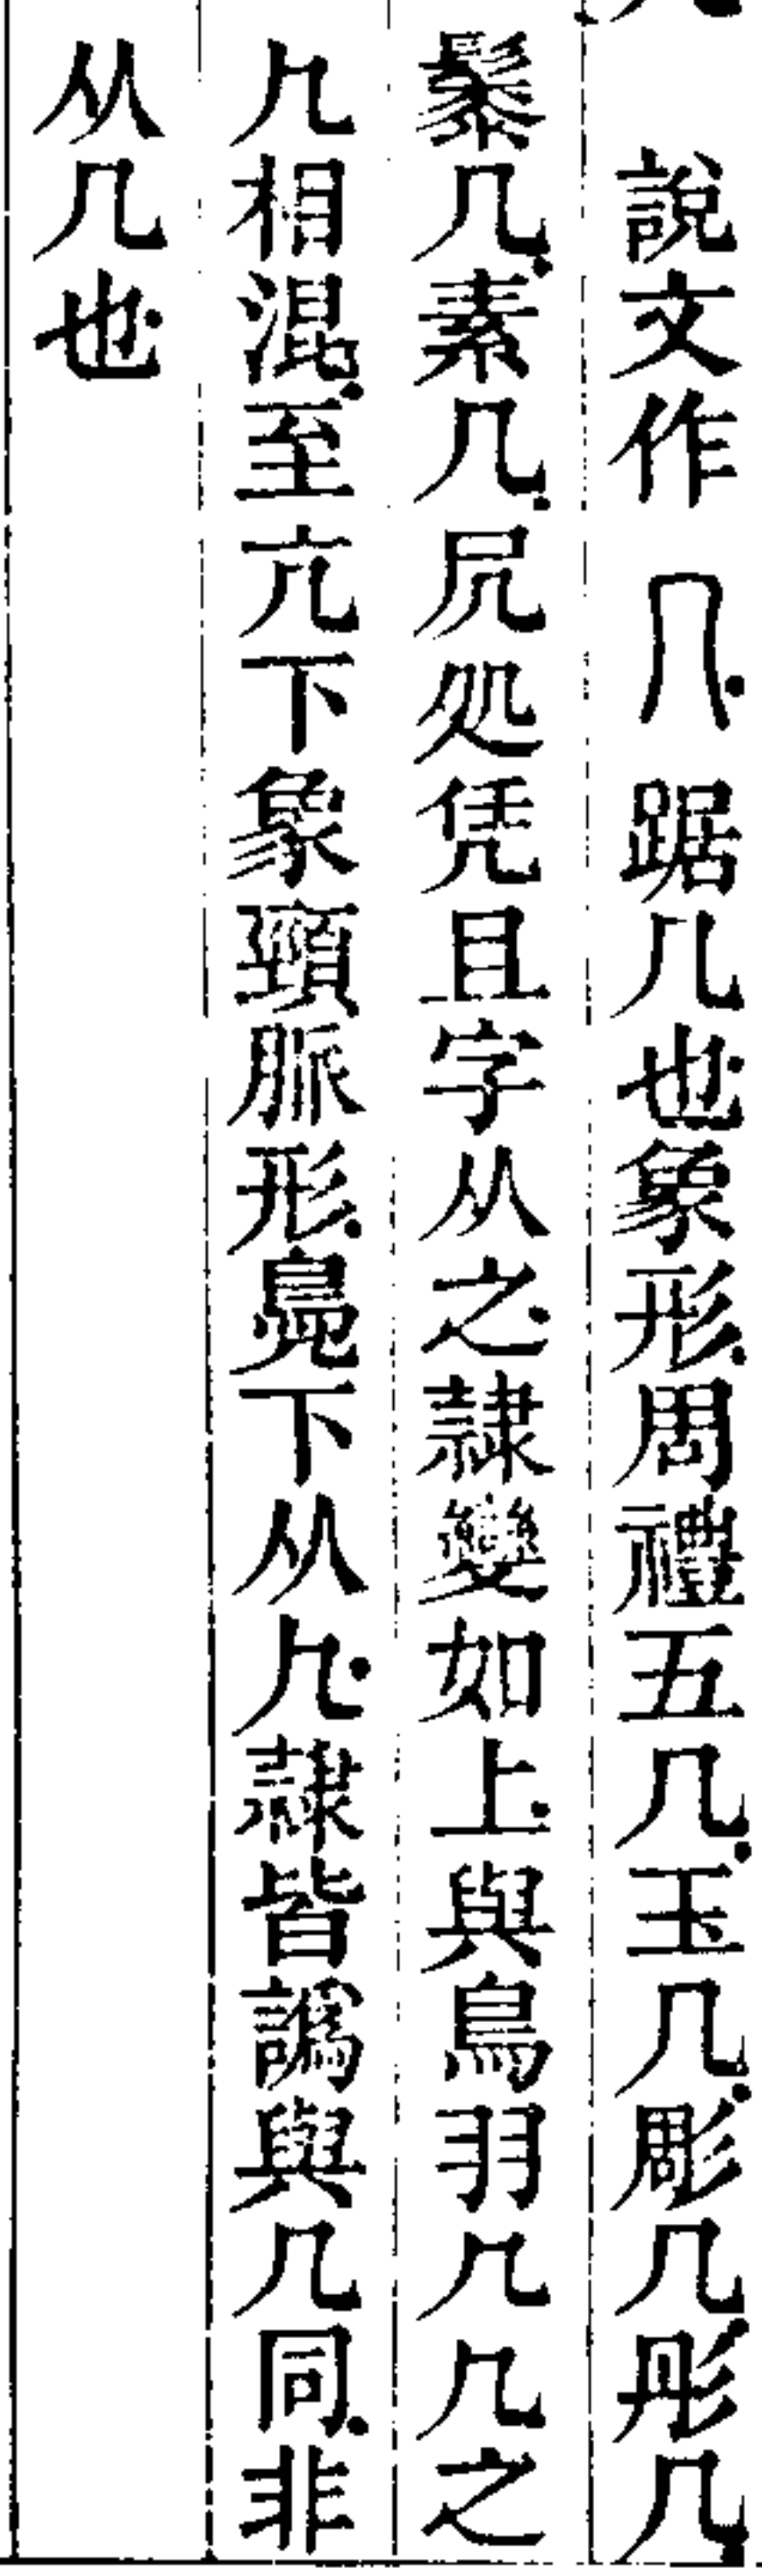 說文作几踞几也象形周禮五几玉几彫几彤几
鬃几素几凥処凭且字从之隷變如上與鳥羽𠘧𠘧之
𠘧相混至亢下象頸脈形鳧下从𠘧隷皆譌與几同非
从几也